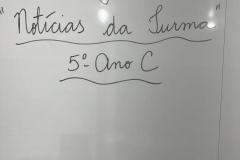 "Notícias da Turma"
5º Ano C